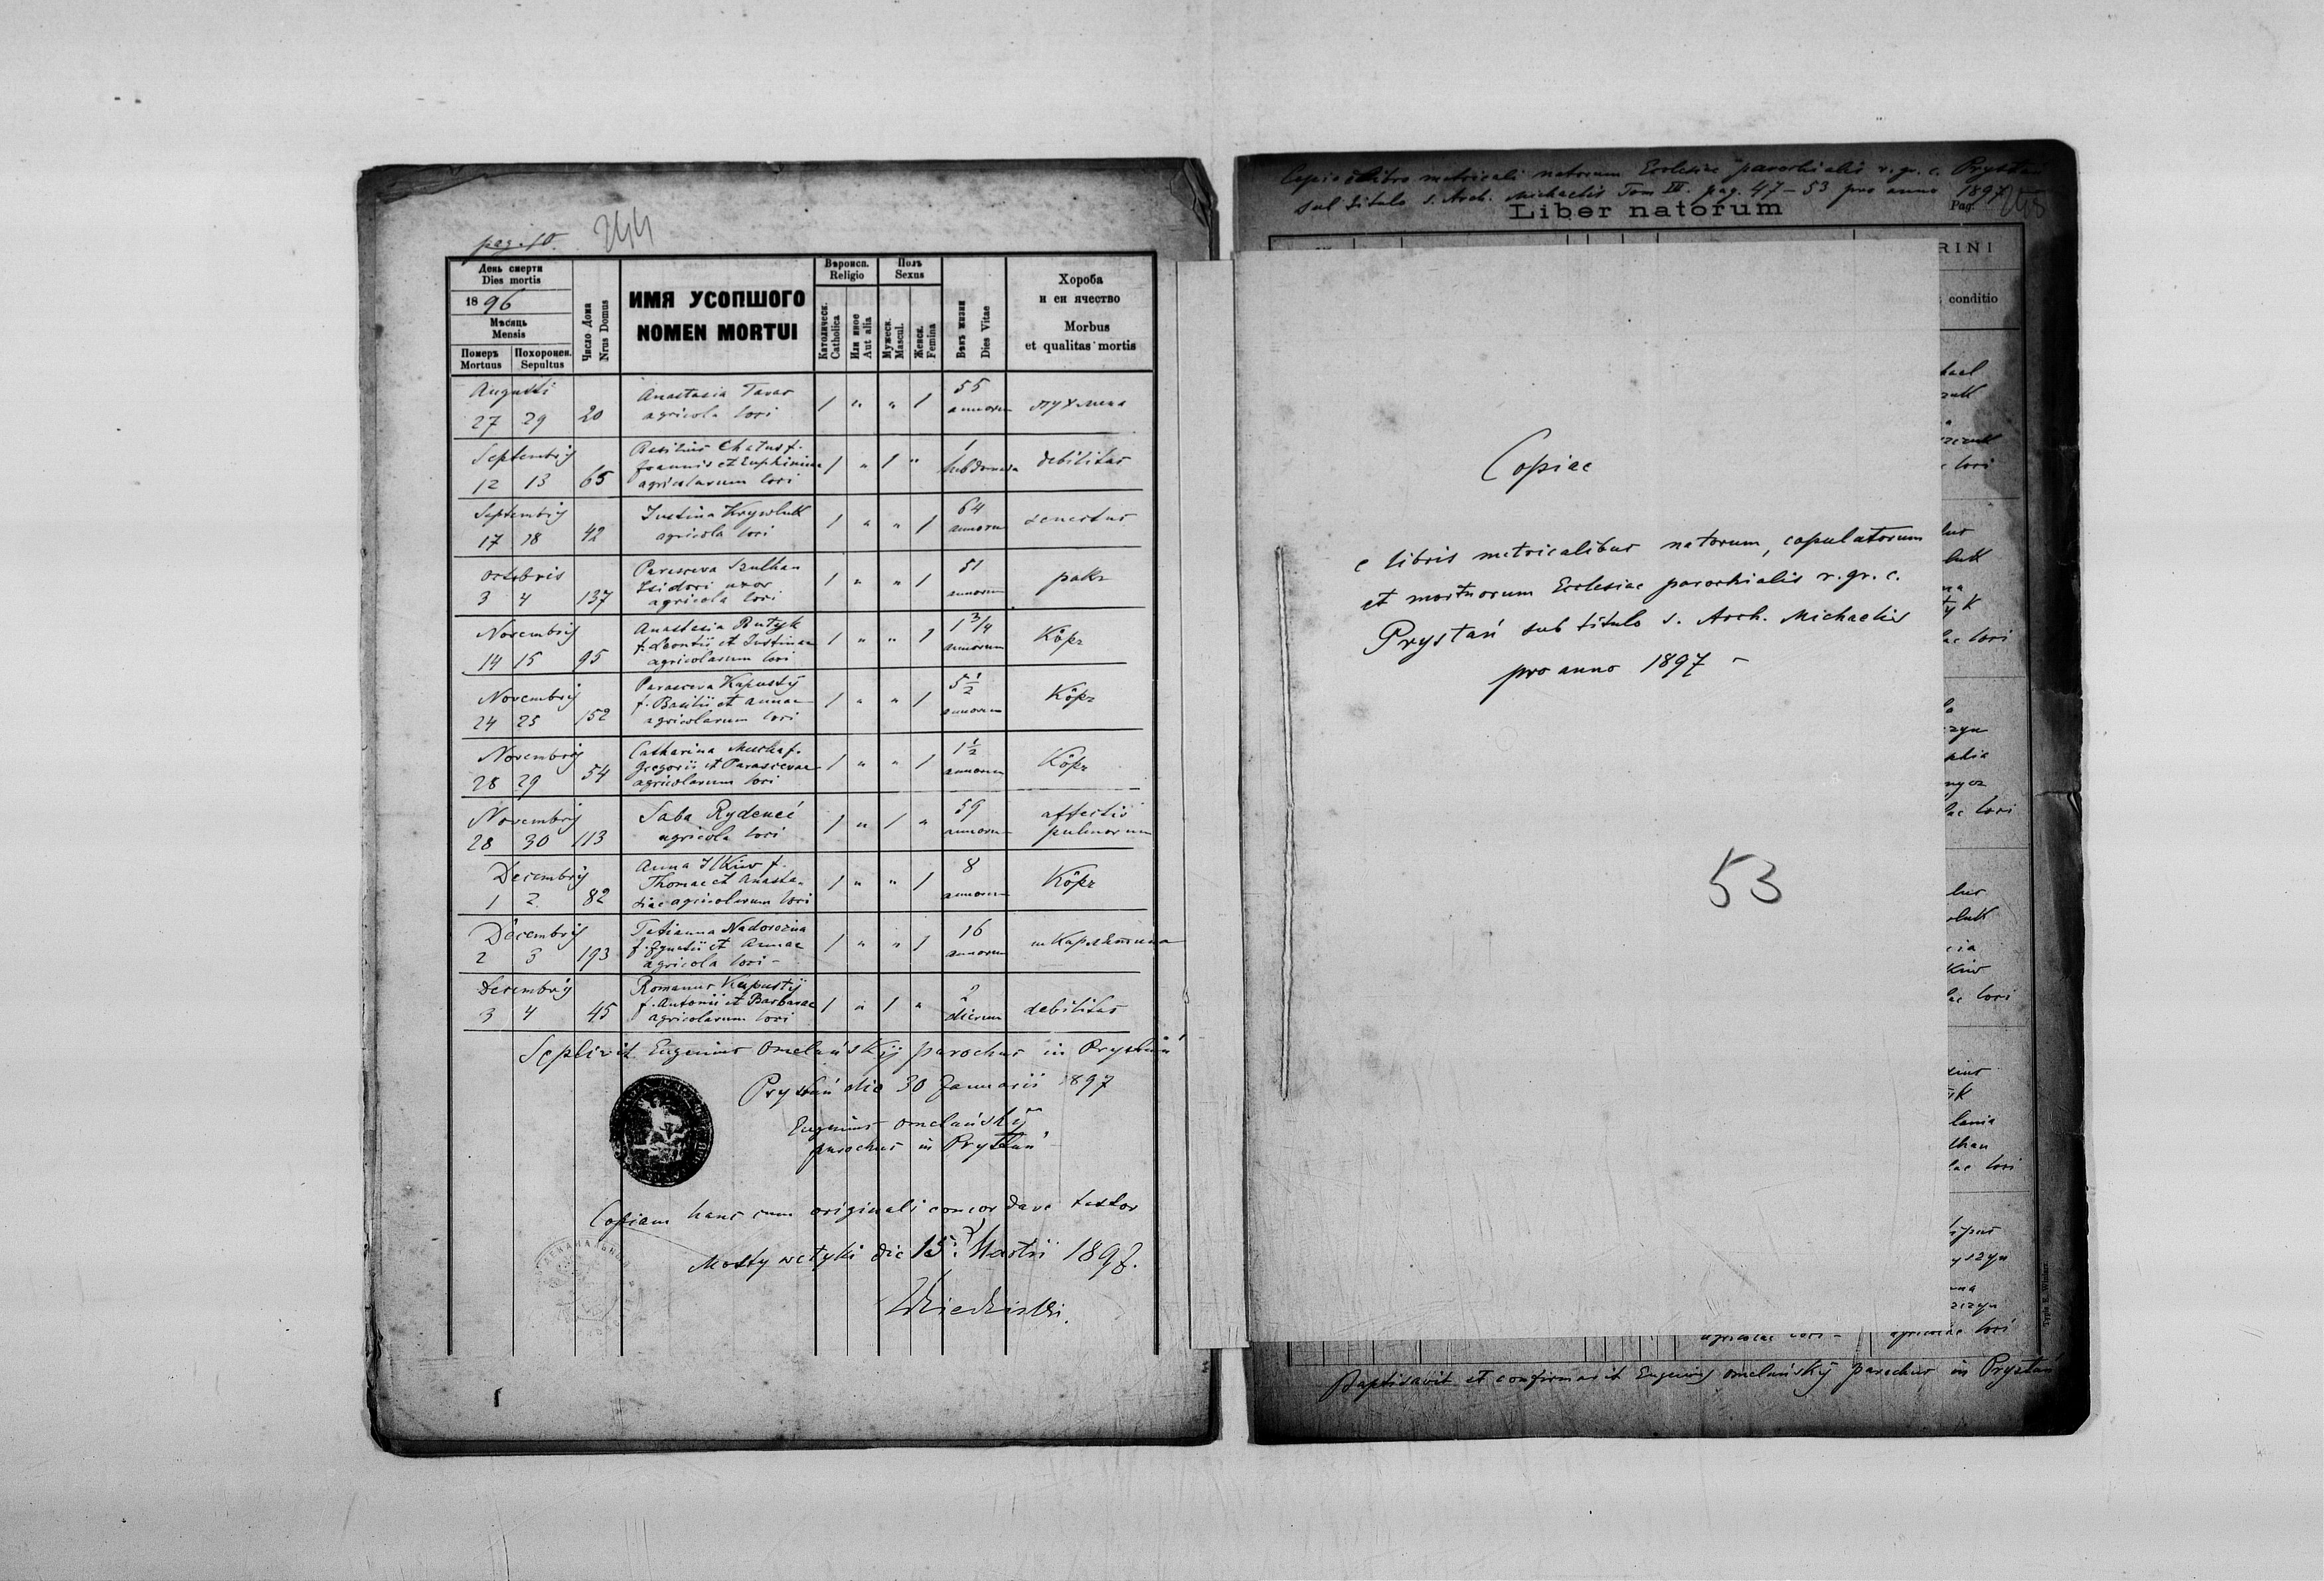 pag. 10.
244
День смерти
Dies mortis
18 96
Мѣсяць
Mensis
Померъ
Mortuus
Похоронен.
Sepultus
Число Дома
Nrus Domus
ИМЯ УСОПШОГО
NOMEN MORTUI
Вѣроисп.
Religio
Католическ.
Catholica
Или иное
Aut alia
Полъ
Sexus
Мужеск.
Mascul.
Женск.
Femina
Вѣкъ жизни
Dies Vitae
Хороба
и еи ячество
Morbus
et qualitas mortis
Augusti
27 29 20
Anastasia
agricola loci
1 " " 1
55
annorum
пухлина
Septembrij
12 13 65
Basilius Chatus f.
Joannis et Euphimiae
agricolarum loci
1 " 1 "
1
hebdomada
debilitas
Septembrij
17 18 42
Justina Krywluk
agricola loci
1 " " 1
64
annorum
senectus
Octobris
3 4 137
Parasceva Szulhan
Isidori uxor
agricola loci
1 " " 1
51
annorum
ракъ
Novembrij
14 15 95
Anastasia Butyk
f. Leontii et Justinae
agricolarum loci
1 " " 1
1 3/4
annorum
Кôръ
Novembrij
24 25 152
Parasceva Kapustij
f. Basilii et Annae
agricolarum loci
1 " " 1
5 1/2
annorum
Кôръ
Novembrij
28 29 54
Catharina f.
Gregorii et Parascevae
agricolarum loci
1 " " 1
1 1/2
annorum
Кôръ
Novembrij
28 30 113
Saba
agricola loci
1 " 1 "
59
annorum
affectio
pulmorum
Decembrij
1 2 82
Anna Ilkiw f.
Thomae et Anasta-
siae agricolarum loci
1 " " 1
8
annorum
Кôръ
Decembrij
2 3 193
Tatianna Nadorożna
f. Ignatii et Annae
agricola loci -
1 " " 1
16
annorum
шкарлятина
Decembrij
3 4 45
Romanus Kapustij
f. Antonii et Barbarae
agricolarum loci
1 " 1 "
dierum
debilitas
Sepelivit Eugenius Omelańskij parochus in Prystań
Prystań die 30 Januarii 1897
Eugenius Omelańskij
parochus in Prystań
Copiam hanc cum originali concordare testor
Mosty wełyki die 15. Martii 1897.
Copia e libro metricali natorum Ecclesiae parochialis r. gr. c. Prystań
sub titulo s. Arch. Michaelis Tom III. pag. 47 - 53 pro anno 1897
Liber natorum
Pag. 245
RINI
conditio
Copiae
e libris metricalibus natorum, copulatorum
et mortuorum Ecclesiae parochialis r. gr. c.
Prystań sub titulo s. Arch. Michaelis
pro anno 1897 -
53
loci
lac loci
lac loci
lac loci
lac loci
agricolae loci - agricolae loci
Typis E. Winiarz
Baptisavit et confirmavit Eugenius Omelańskij parochus in Prystań